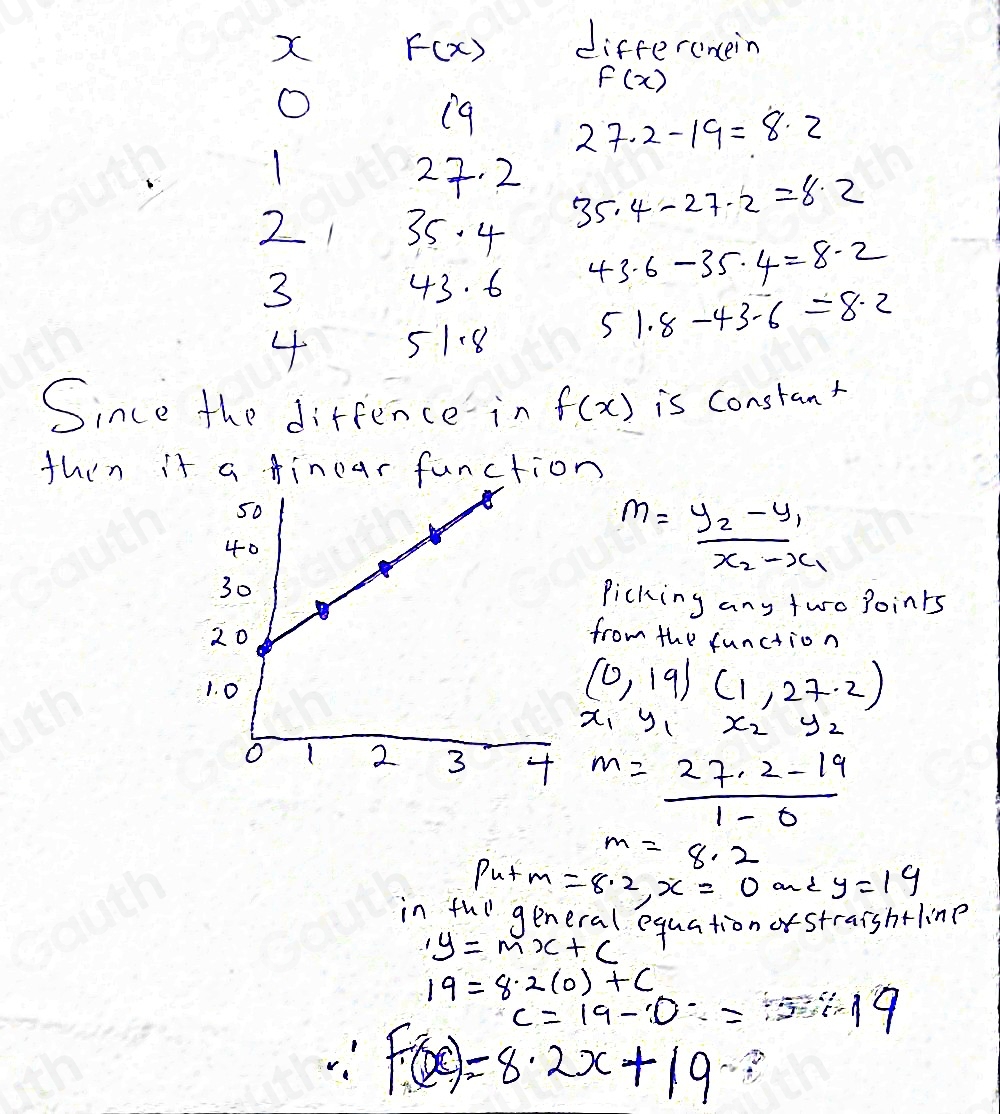 x F(x) differencein
F(x)
0 19 27.2-19=8.2
1 27.2 35.4-27.2=8.2
2 35.4 43.6-35.4=8.2
3 43.6 51.8-43.6=8.2
4 51.8
Since the diffence in f(x) is constant
then it a linear function
50
40
30
20
1.0
0 1 2 3 4
m= y₂-y₁
x₂-x₁
Picking any two Points
from the function
(0,19) (1,27.2)
x₁ y₁ x₂ y₂
m= 27.2-19
1-0
m= 8.2
Put m=8.2, x= 0 and y=19
in the general equation of straightline
y=mx+c
19=8.2(0)+c
c=19-0 = 19
∵ F(x)=8.2x+19
Gauth